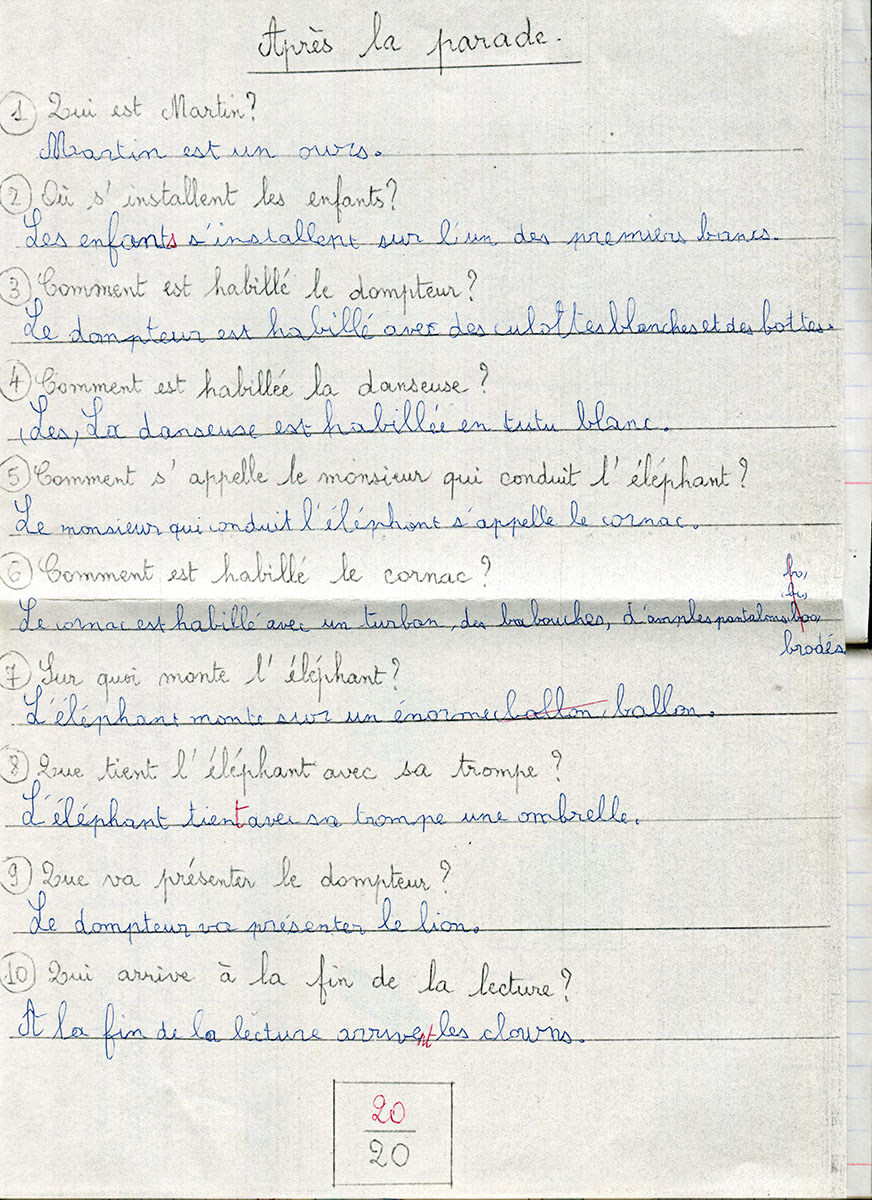 Après la parade.
1 Qui est Martin?
Martin est un ours.
2 Où s'installent les enfants?
Les enfants s'installent sur l'un des premiers bancs.
3 Comment est habillé le dompteur?
Le dompteur est habillé avec des culottes blanches et des bottes.
4 Comment est habillée la danseuse?
(Les, La danseuse est habillée en tutu blanc.
5 Comment s'appelle le monsieur qui conduit l'éléphant?
Le monsieur qui conduit l'éléphant s'appelle le cornac.
6 Comment est habillé le cornac?
Le cornac est habillé avec un turban, des babouches, d'amples pantalons
brodés
7 Sur quoi monte l'éléphant?
L'éléphant monte sur un énorme ballon, ballon.
8 Que tient l'éléphant avec sa trompe?
L'éléphant tient avec sa trompe une ombrelle.
9 Que va présenter le dompteur?
Le dompteur va présenter le lion.
10 Qui arrive à la fin de la lecture?
A la fin de la lecture arrivent les clowns.
20
20